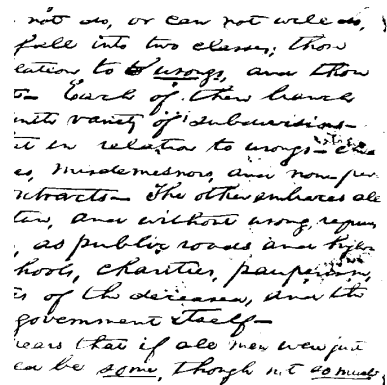 not do, or can not well do,
fall into two classes; thos
lation to wrongs, and thos
Each of these branch
variety of subdivisions—
in relation to wrongs—
es, misdemeanors, and non-per
ntracts— The other embraces all
and without wrong, requir
, as public roads and highw
hools, charities, pauperism,
of the deceased, and the
government itself—
that if all men were just
be some, though not so much,